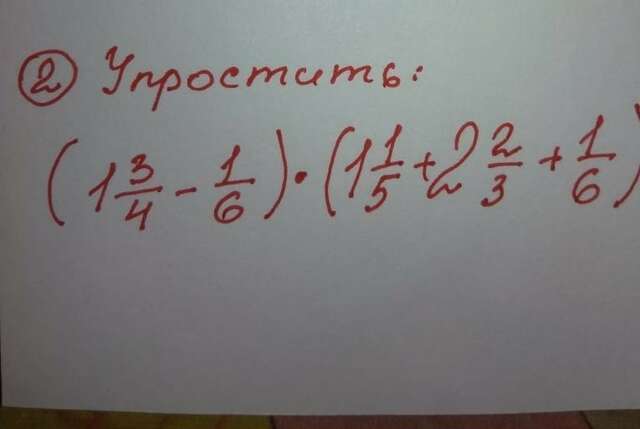 ② Упростить:
(1 3/4 - 1/6) · (1 1/5 + 2 2/3 + 1/6)